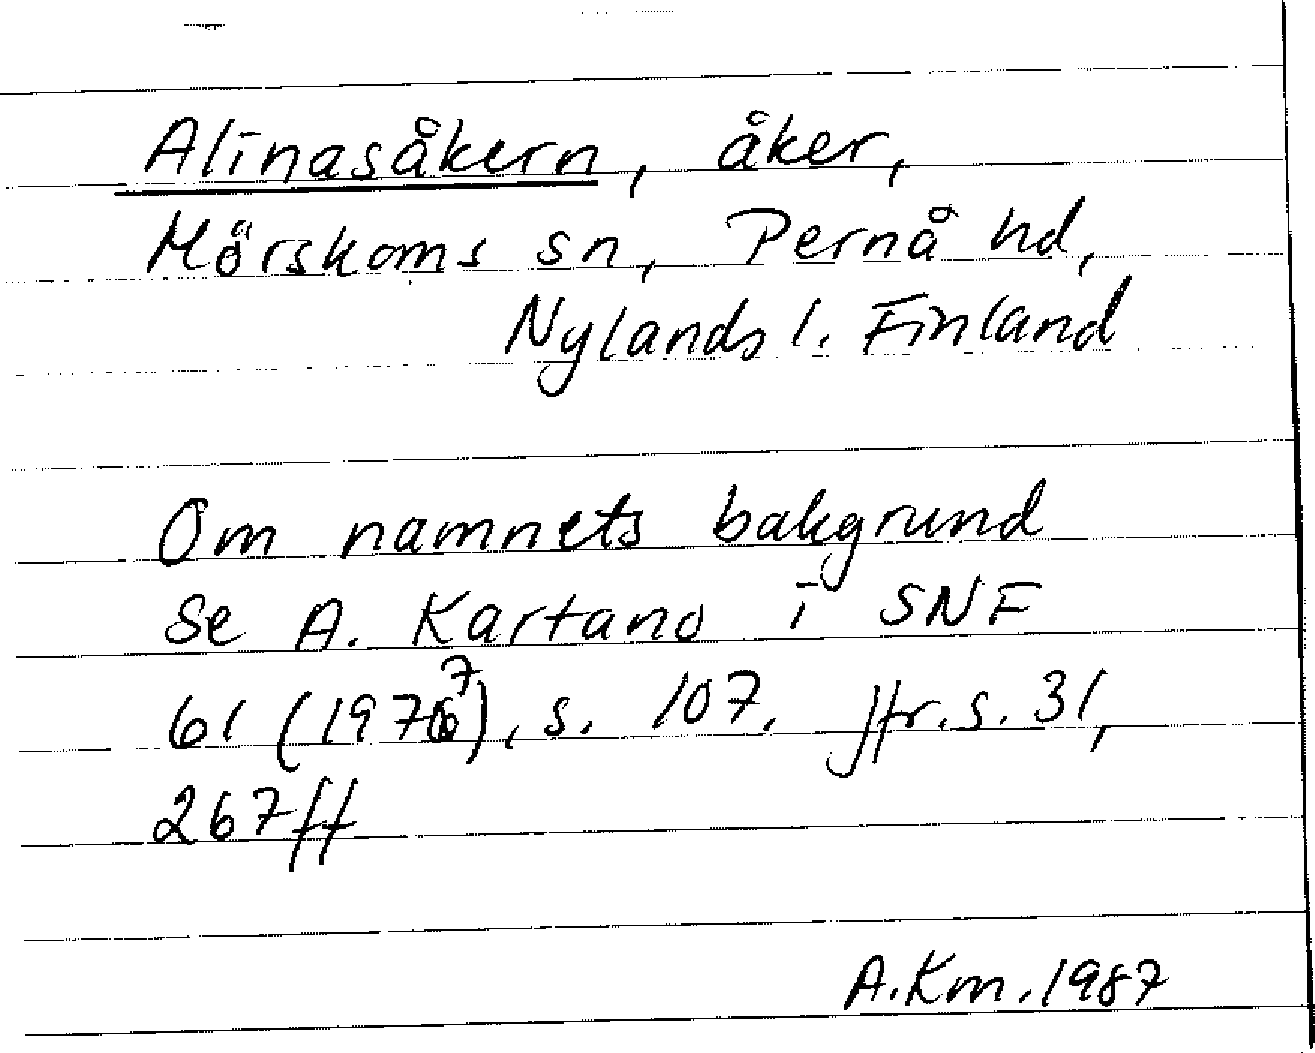 Alinasåkern, åker,
Mörskoms sn, Pernå hd,
Nylands l. Finland
Om namnets bakgrund
se A. Kartano i SNF
61 (1977), s. 107. Jfr. s. 31,
267 ff
A.Km. 1987